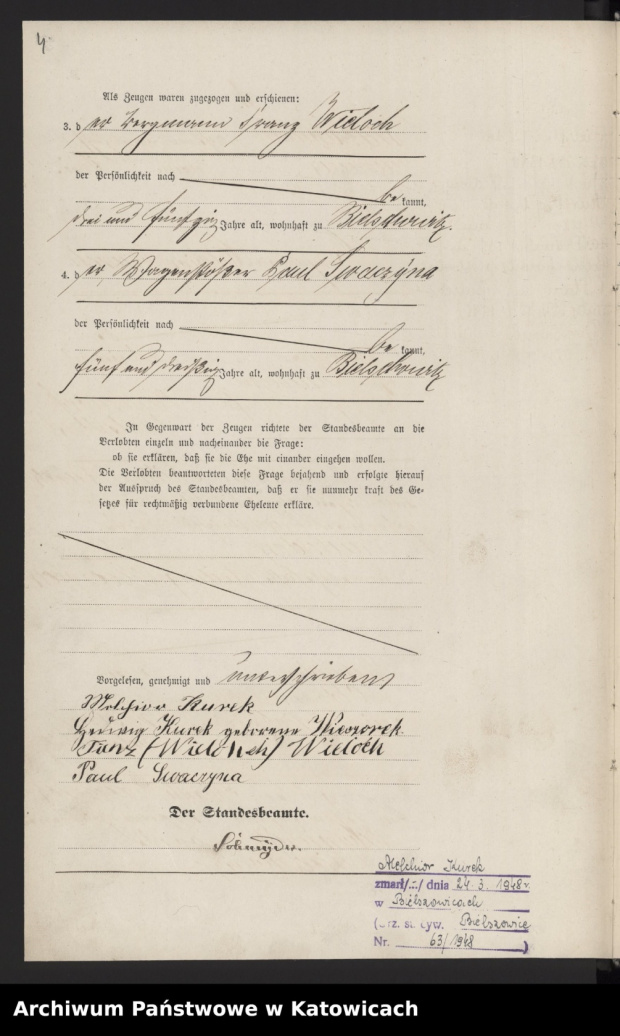 4
Als Zeugen waren zugezogen und erschienen:
3. der Bergmann Franz Wieloch
der Persönlichkeit nach
be kannt,
drei und fünfzig Jahre alt, wohnhaft zu Bielschowitz.
4. der Wagenstößer Paul Swaczyna
der Persönlichkeit nach
be kannt,
fünf und dreißig Jahre alt, wohnhaft zu Bielschowitz
In Gegenwart der Zeugen richtete der Standesbeamte an die
Verlobten einzeln und nacheinander die Frage:
ob sie erklären, daß sie die Ehe mit einander eingehen wollen.
Die Verlobten beantworteten diese Frage bejahend und erfolgte hierauf
der Ausspruch des Standesbeamten, daß er sie nunmehr kraft des Ge-
setzes für rechtmäßig verbundene Eheleute erkläre.
Vorgelesen, genehmigt und unterschrieben
Melchior Kurek
Hedwig Kurek geborene
Franz Wieloch
Paul Swaczyna
Der Standesbeamte.
Melchior Kurek
zmarł/.-./ dnia 24. 3. 1948 r.
w Bielszowicach
(Urz. st. cyw. Bielszowice
Nr. 63/1948 )
Archiwum Państwowe w Katowicach